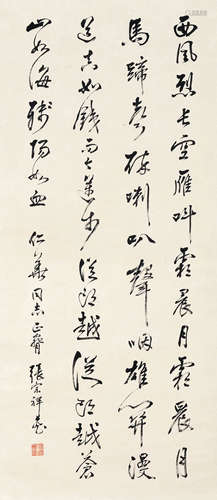 西風烈長空雁叫霜晨月霜晨月
馬蹄聲碎喇叭聲咽雄關漫
道真如鐵而今邁步從頭越從頭越蒼
山如海殘陽如血 仁華同志正 張宗祥書